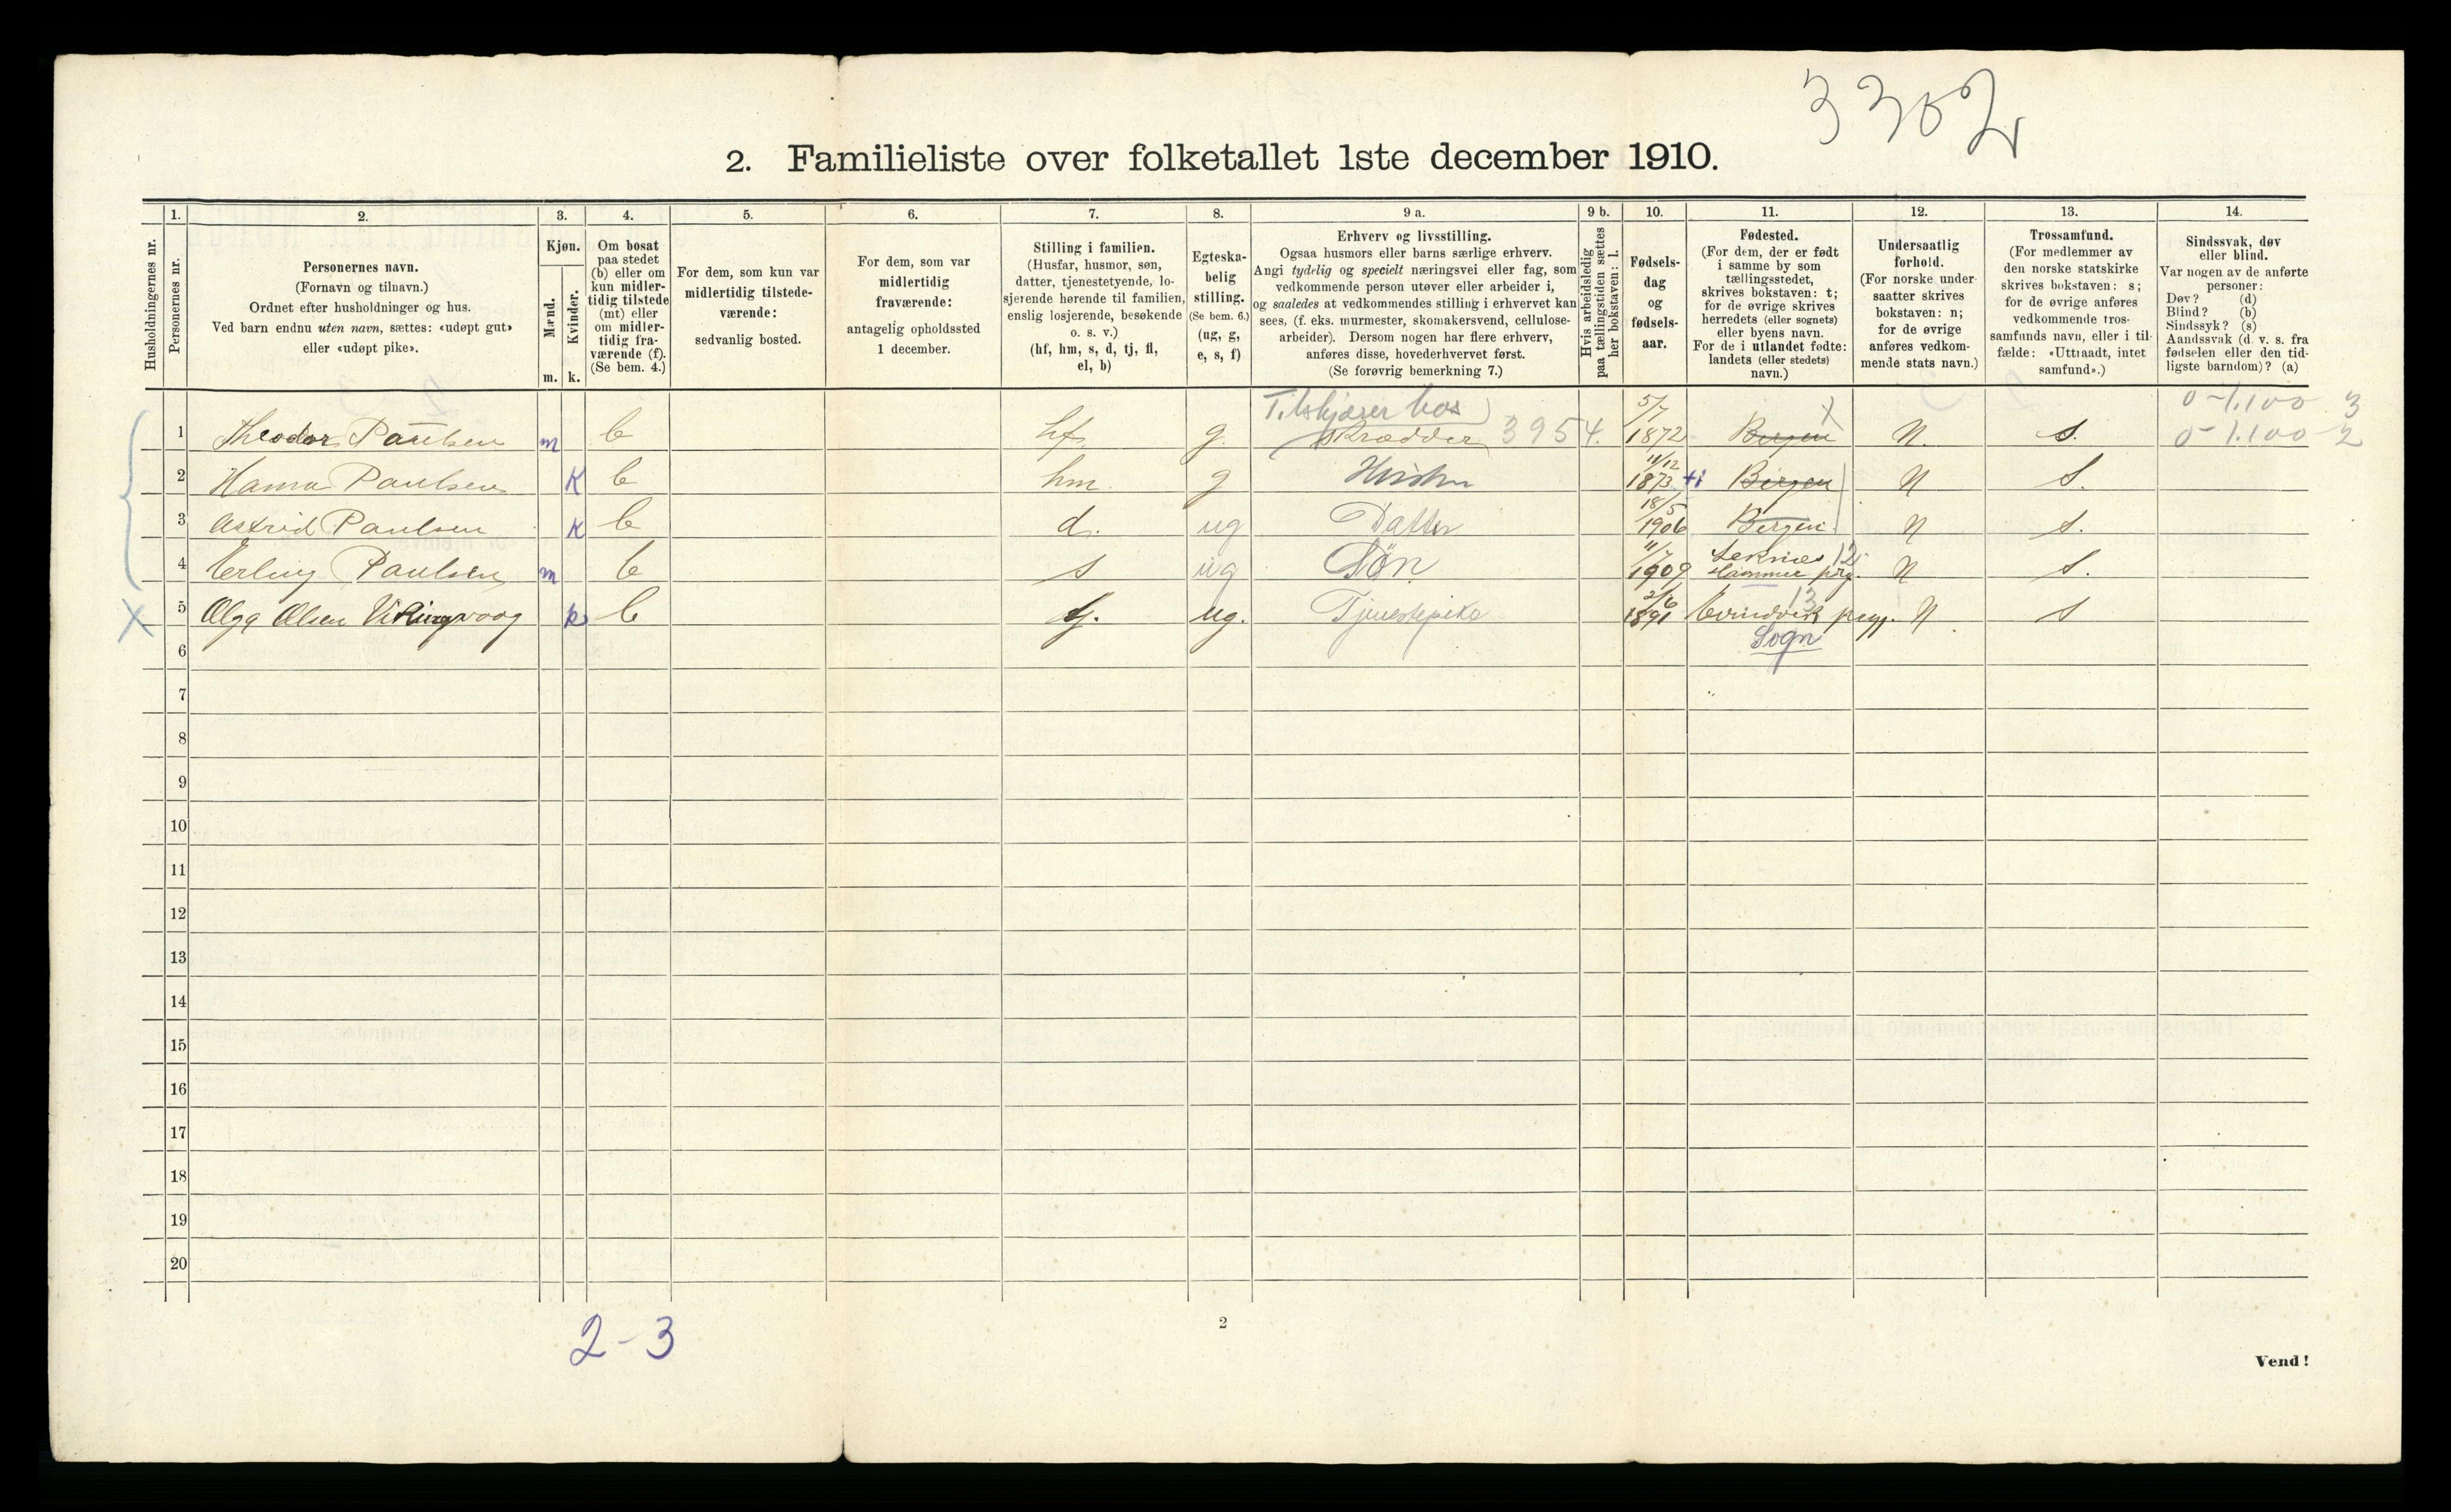 3302
2. Familieliste over folketallet 1ste december 1910.
Husholdningernes nr.
1.
Personernes nr.
2.
Personernes navn.
(Fornavn og tilnavn.)
Ordnet efter husholdninger og hus.
Ved barn endnu uten navn, sættes: «udøpt gut»
eller «udøpt pike».
3.
Kjøn.
Mænd.
Kvinder.
m. k.
4.
Om bosat
paa stedet
(b) eller om
kun midler-
tidig tilstede
(mt) eller
om midler-
tidig fra-
værende (f).
(Se bem. 4.)
5.
For dem, som kun var
midlertidig tilstede-
værende:
sedvanlig bosted.
6.
For dem, som var
midlertidig
fraværende:
antagelig opholdssted
1 december.
7.
Stilling i familien.
(Husfar, husmor, søn,
datter, tjenestetyende, lo-
sjerende hørende til familien,
enslig losjerende, besøkende
o. s. v.)
(hf, hm, s, d, tj, fl,
el, b)
8.
Egteska-
belig
stilling.
(Se bem. 6.)
(ug, g,
e, s, f)
9 a.
Erhverv og livsstilling.
Ogsaa husmors eller barns særlige erhverv.
Angi tydelig og specielt næringsvei eller fag, som
vedkommende person utøver eller arbeider i,
og saaledes at vedkommendes stilling i erhvervet kan
sees, (f. eks. murmester, skomakersvend, cellulose-
arbeider). Dersom nogen har flere erhverv,
anføres disse, hovederhvervet først.
(Se forøvrig bemerkning 7.)
9 b.
Hvis arbeidsledig
paa tællingstiden sættes
her bokstaven: l.
10.
Fødsels-
dag
og
fødsels-
aar.
11.
Fødested.
(For dem, der er født
i samme by som
tællingsstedet,
skrives bokstaven: t;
for de øvrige skrives
herredets (eller sognets)
eller byens navn.
For de i utlandet fødte:
landets (eller stedets)
navn.)
12.
Undersaatlig
forhold.
(For norske under-
saatter skrives
bokstaven: n;
for de øvrige
anføres vedkom-
mende stats navn.)
13.
Trossamfund.
(For medlemmer av
den norske statskirke
skrives bokstaven: s;
for de øvrige anføres
vedkommende tros-
samfunds navn, eller i til-
fælde: «Uttraadt, intet
samfund».)
14.
Sindssvak, døv
eller blind.
Var nogen av de anførte
personer:
Døv? (d)
Blind? (b)
Sindssyk? (s)
Aandssvak (d. v. s. fra
fødselen eller den tid-
ligste barndom)? (a)
Tilskjærer hos 5/7 X 0-1.100 3
1 Theodor Paulsen m b hf g. Skrædder 3954. 1872 Bergen N. S. 0-1.100 2
11/12
2 Hanna Paulsen K b hm. g 1873 ti Bergen N S.
18/5
3 Astrid Paulsen K b d. ug Datter 1906 Bergen. N S.
11/7 12
4 Erling Paulsen m b s ug Søn 1909 Hammer prg. N S.
2/6 13
5 Olga Olsen Vikingvaag k b tj. ug. Tjenestepike 1891 Evindvik prgj. N S
6 Sogn
7
8
9
10
11
12
13
14
15
16
17
18
19
20
2-3
2
Vend!
X